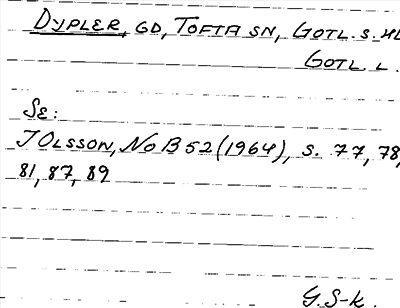 DYPLER, GD, TOFTA SN, GOTL. S. HD
GOTL. L.
SE:
I OLSSON, NOB 52 (1964), S. 77, 78,
81, 87, 89
G. S-k.